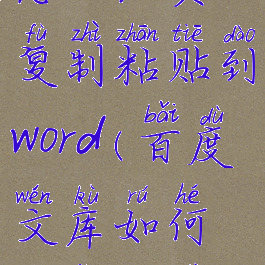 fù zhì zhān tiē dào
复制粘贴到
bǎi dù
word(百度
wén kù rú hé
文库如何